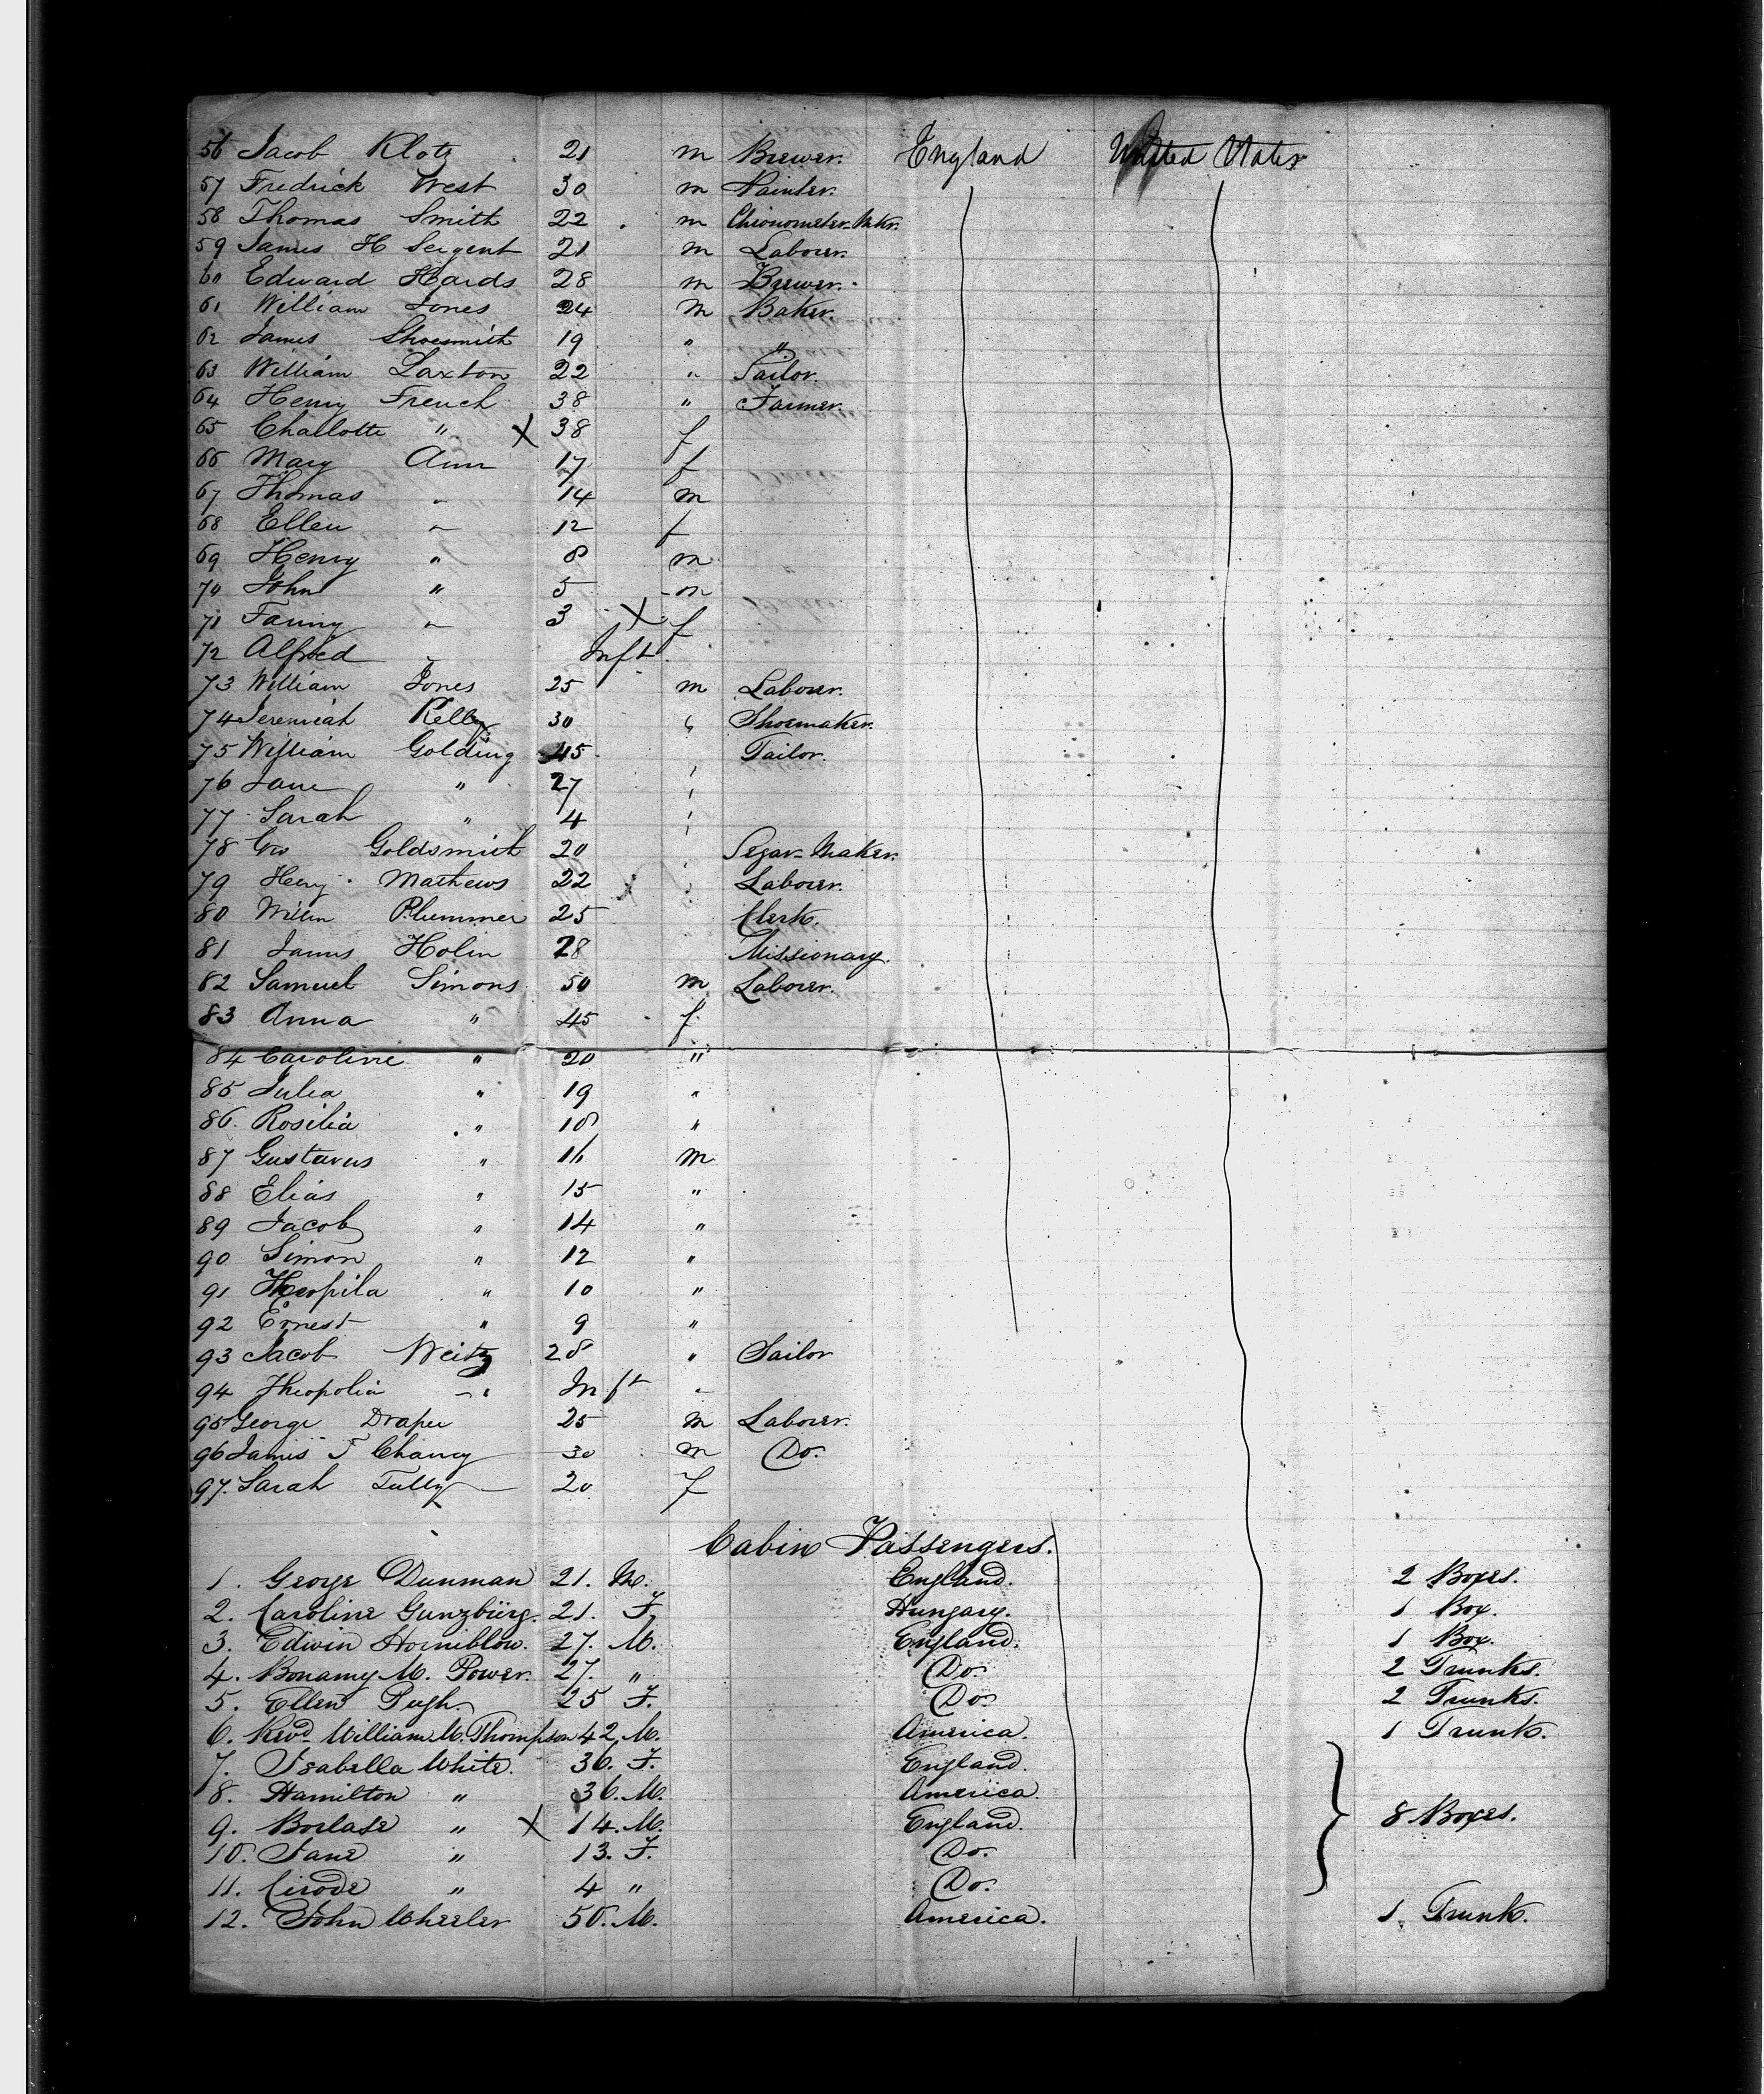 56 Jacob Klotz 21 m Brewer. England United States
57 Fredrick West 30 m Painter.
58 Thomas Smith 22 . m Chronometer-Mkr.
59 James H Sergent 21 m Laborer.
60 Edward Hards 28 m Brewer.
61 William Jones 24 m Baker.
62 James Shoesmith 19 " "
63 William Laxton 22 " Sailor.
64 Henry French 38 " Farmer.
65 Charlotte " X 38 f
66 Mary Ann 17 f
67 Thomas " 14 m
68 Ellen " 12 f
69 Henry " 8 m
70 John " 5 m
71 Fanny " 3 X f
72 Alfred " Inft.
73 William Jones 25 m Laborer.
74 Jeremiah Kelly 30 " Shoemaker.
75 William Golding 45 Tailor.
76 Jane " 27 "
77 Sarah " 4 "
78 Geo Goldsmith 20 Segar-Maker.
79 Henry Mathews 22 Laborer.
80 Willm Plummer 25 Clerk.
81 James Holin 28 Missionary.
82 Samuel Simons 50 m Laborer.
83 Anna " 45 f
84 Caroline " 20 "
85 Julia " 19 "
86. Rosilia " 18 "
87 Gustavus " 16 m
88 Elias " 15 "
89 Jacob " 14 "
90 Simon " 12 "
91 Theopila " 10 "
92 Ernest " 9 "
93 Jacob Weitz 28 " Sailor
94 Theopolia " Inft "
95 George Draper 25 m Laborer.
96 James T Chancy 30 m Do.
97. Sarah Tully 20 f
Cabin Passengers.
1. George Dunman 21. M. England. 2 Boxes.
2. Caroline Gunzbürg. 21. F. Hungary. 1 Box.
3. Edwin Horniblow. 27. M. England. 1 Box.
4. Bonamy M. Power. 27. " Do. 2 Trunks.
5. Ellen Pugh. 25 F. Do. 2 Trunks.
6. Revd. William M. Thompson 42. M. America. 1 Trunk.
7. Isabella White. 36. F. England.
8. Hamilton " 36. M. America.
9. Borlase " X 14. M. England. 8 Boxes.
10. Jane " 13. F. Do.
11. " 4 " Do.
12. John Wheeler 50. M. America. 1 Trunk.